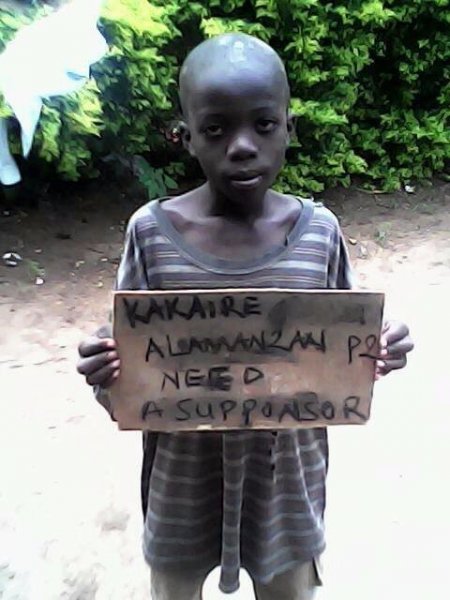 KAKAIRE
ALAMANZAN P2
NEED
A SUPPONSOR